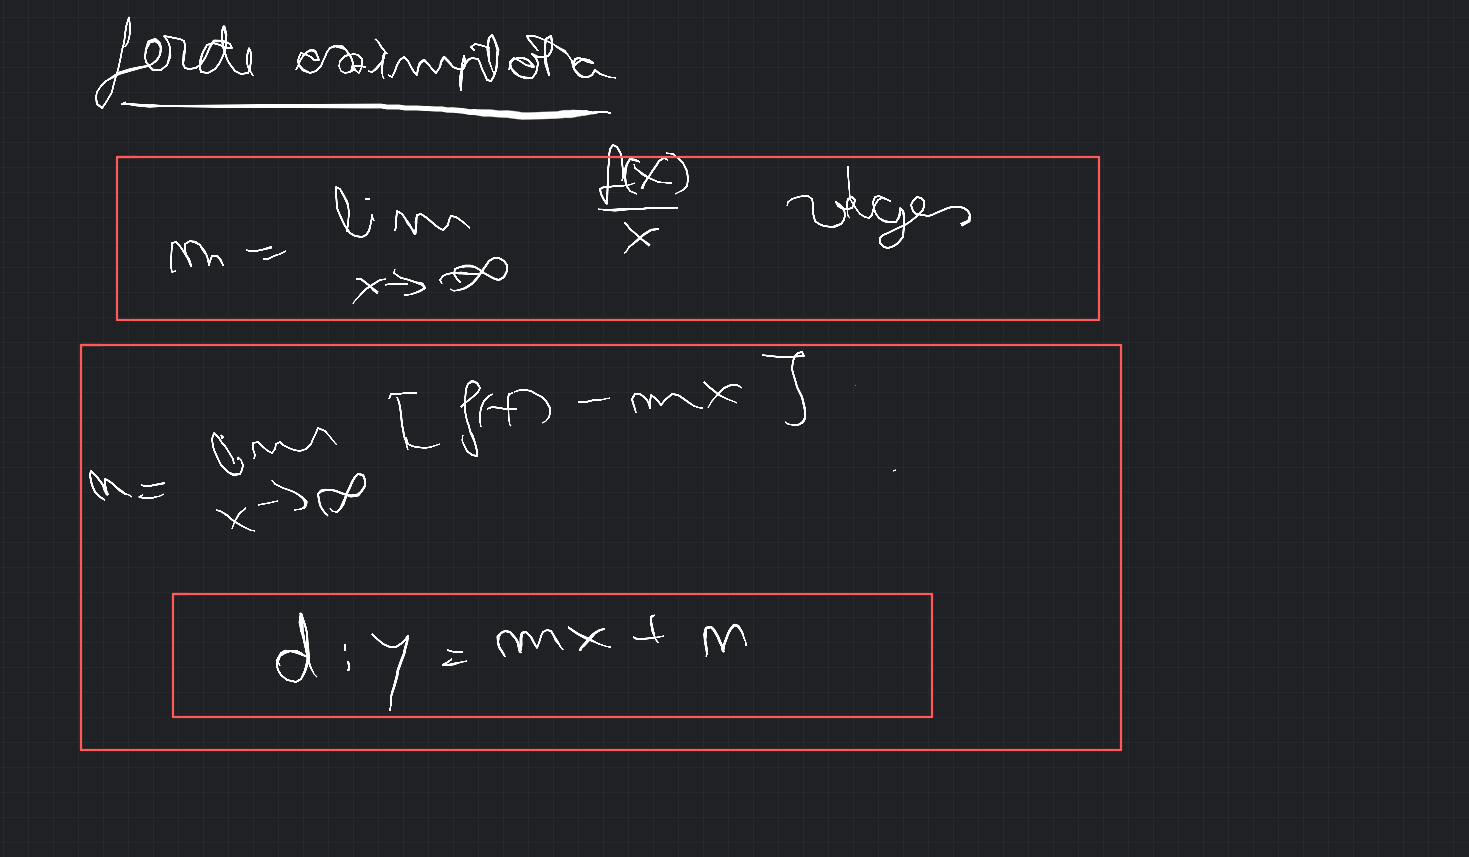 ferde aszimptota
m = lim x→∞ f(x)/x véges
n = lim x→∞ [f(x) - mx]
d: y = mx + n